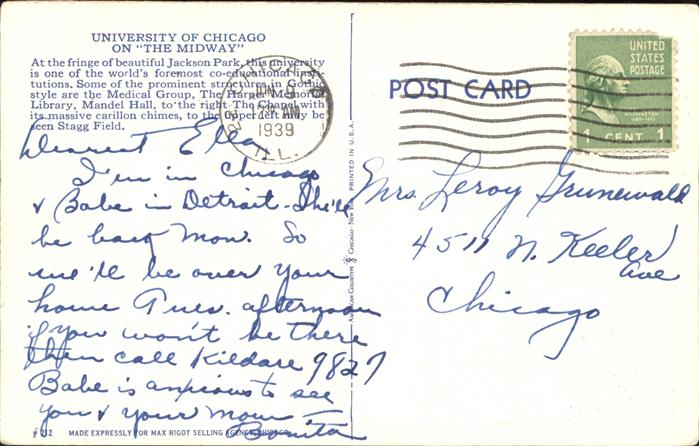 UNIVERSITY OF CHICAGO
ON "THE MIDWAY"
At the fringe of beautiful Jackson Park, this university
is one of the world's foremost co-educational insti-
tutions. Some of the prominent structures in Gothic
style are the Medical Group, The Harper Memorial
Library, Mandel Hall, to the right The Chapel with
its massive carillon chimes, to the upper left may be
seen Stagg Field.
CHICAGO
JUN
12 AM
1939
ILL.
Dearest Ella,
I'm in Chicago
& Babe in Detroit - She'll
be back Mon. So
we'll be over your
home Tues. afternoon
if you won't be there
then call Kildare 9827
Babe is anxious to see
you & your mom -
Bonita
212 MADE EXPRESSLY FOR MAX RIGOT SELLING AGENCY, CHICAGO
PRINTED IN U.S.A.
POST CARD
UNITED
STATES
POSTAGE
WASHINGTON
1 CENT 1
Mrs. Leroy Grunewald
4511 N. Keeler
Ave
Chicago